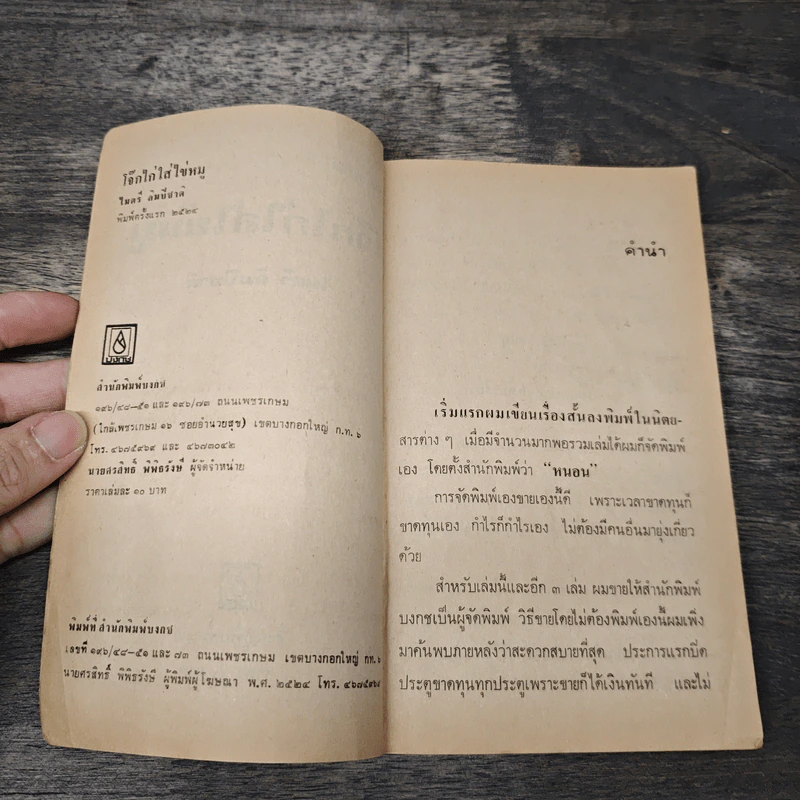 โจ๊กไก่ใส่ไข่หมู
ไมตรี ลิมปิชาติ
พิมพ์ครั้งแรก ๒๕๒๔
บงกช
สำนักพิมพ์บงกช
๑๙๖/๔๘–๕๑ และ ๑๙๖/๗๓ ถนนเพชรเกษม
(ใกล้เพชรเกษม ๑๖ ซอยอำนวยสุข) เขตบางกอกใหญ่ ก.ท. ๖
โทร. ๔๖๗๕๙๖๘ และ ๔๖๗๓๐๔๒
นายศรสิทธิ์ พิพิธรังษี ผู้จัดจำหน่าย
ราคาเล่มละ ๑๐ บาท
พิมพ์ที่ สำนักพิมพ์บงกช
เลขที่ ๑๙๖/๔๘–๕๑ และ ๗๓ ถนนเพชรเกษม เขตบางกอกใหญ่ กท. ๖
นายศรสิทธิ์ พิพิธรังษี ผู้พิมพ์ผู้โฆษณา พ.ศ. ๒๕๒๔ โทร. ๔๖๗๕๙๖๘
คำนำ
เริ่มแรกผมเขียนเรื่องสั้นลงพิมพ์ในนิตย-
สารต่าง ๆ เมื่อมีจำนวนมากพอรวมเล่มได้ผมก็จัดพิมพ์
เอง โดยตั้งสำนักพิมพ์ว่า “หนอน”
การจัดพิมพ์เองขายเองนี้ดี เพราะเวลาขาดทุนก็
ขาดทุนเอง กำไรก็กำไรเอง ไม่ต้องมีคนอื่นมายุ่งเกี่ยว
ด้วย
สำหรับเล่มนี้และอีก ๓ เล่ม ผมขายให้สำนักพิมพ์
บงกชเป็นผู้จัดพิมพ์ วิธีขายโดยไม่ต้องพิมพ์เองนี้ผมเพิ่ง
มาค้นพบภายหลังว่าสะดวกสบายที่สุด ประการแรกปิด
ประตูขาดทุนทุกประตูเพราะขายก็ได้เงินทันที และไม่